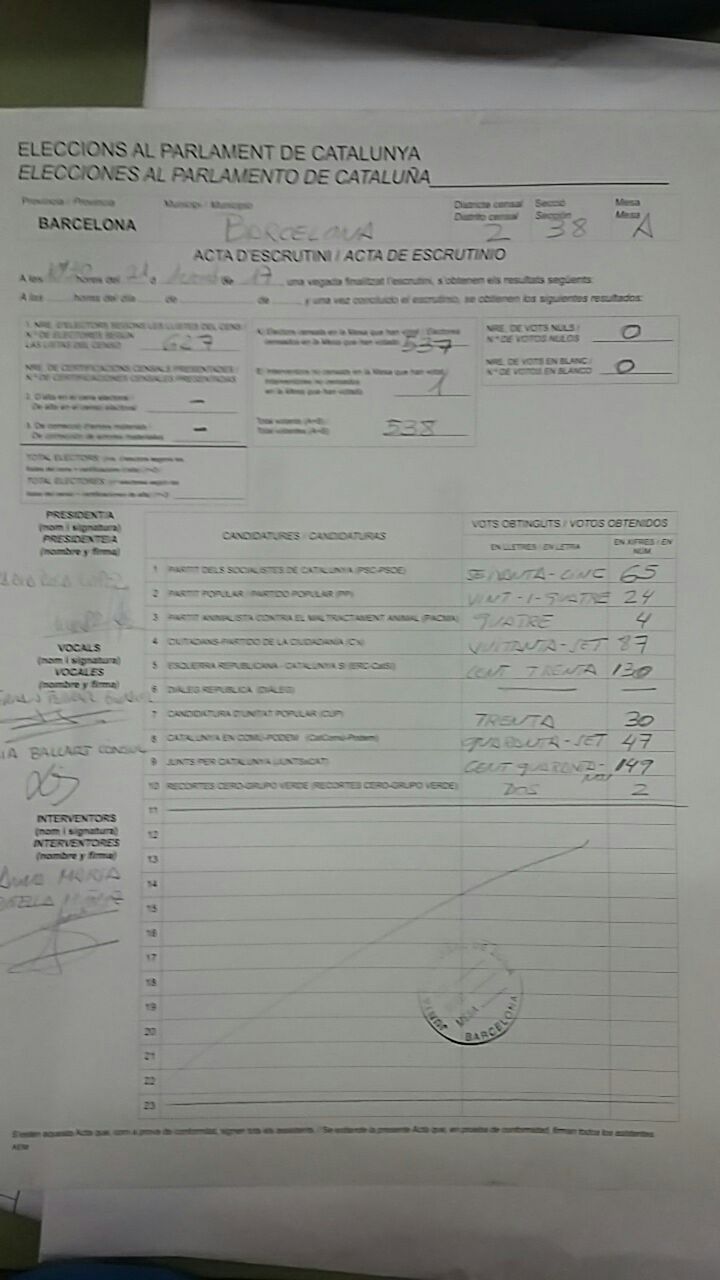 ELECCIONS AL PARLAMENT DE CATALUNYA
ELECCIONES AL PARLAMENTO DE CATALUÑA
Província / Provincia Municipi / Municipio Districte censal Secció Mesa
Distrito censal Sección Mesa
BARCELONA BARCELONA 2 38 A
ACTA D'ESCRUTINI / ACTA DE ESCRUTINIO
A les hores del 21 d de 17 una vegada finalitzat l'escrutini, s'obtenen els resultats següents:
A las horas del día de de y una vez concluido el escrutinio, se obtienen los siguientes resultados:
1. NRE. D'ELECTORS SEGONS LES LLISTES DEL CENS /
Nº DE ELECTORES SEGÚN
LAS LISTAS DEL CENSO 627
NRE. DE CERTIFICACIONS CENSALS PRESENTADES /
Nº DE CERTIFICACIONES CENSALES PRESENTADAS
2. D'alta en el cens electoral /
De alta en el censo electoral —
3. De correcció d'errors materials /
De corrección de errores materiales —
TOTAL ELECTORS
TOTAL ELECTORES
A) Electors censats en la Mesa que han votat / Electores
censados en la Mesa que han votado 537
B) Interventors no censats en la Mesa que han votat
Interventores no censados
en la Mesa que han votado 1
Total votants (A+B) /
Total votantes (A+B) 538
NRE. DE VOTS NULS /
Nº DE VOTOS NULOS 0
NRE. DE VOTS EN BLANC /
Nº DE VOTOS EN BLANCO 0
PRESIDENT/A
(nom i signatura)
PRESIDENTE/A
(nombre y firma)
VOCALS
(nom i signatura)
VOCALES
(nombre y firma)
BALLART CONSUL
INTERVENTORS
(nom i signatura)
INTERVENTORES
(nombre y firma)
MARIA
CANDIDATURES / CANDIDATURAS VOTS OBTINGUTS / VOTOS OBTENIDOS
EN LLETRES / EN LETRA EN XIFRES / EN NÚM.
1 PARTIT DELS SOCIALISTES DE CATALUNYA (PSC-PSOE) SEIXANTA-CINC 65
2 PARTIT POPULAR / PARTIDO POPULAR (PP) VINT-I-QUATRE 24
3 PARTIT ANIMALISTA CONTRA EL MALTRACTAMENT ANIMAL (PACMA) QUATRE 4
4 CIUTADANS-PARTIDO DE LA CIUDADANÍA (C's) VUITANTA-SET 87
5 ESQUERRA REPUBLICANA - CATALUNYA SÍ (ERC-CatSí) CENT TRENTA 130
6 DIÀLEG REPUBLICA (DIÀLEG) — —
7 CANDIDATURA D'UNITAT POPULAR (CUP) TRENTA 30
8 CATALUNYA EN COMÚ-PODEM (CatComú-Podem) QUARANTA-SET 47
9 JUNTS PER CATALUNYA (JUNTSxCAT) CENT QUARANTA-NOU 149
10 RECORTES CERO-GRUPO VERDE (RECORTES CERO-GRUPO VERDE) DOS 2
11
12
13
14
15
16
17
18
19
20
21
22
23
JUNTA DE ZONA
MESA
BARCELONA
S'estén aquesta Acta que, com a prova de conformitat, signen tots els assistents. / Se extiende la presente Acta que, en prueba de conformidad, firman todos los asistentes